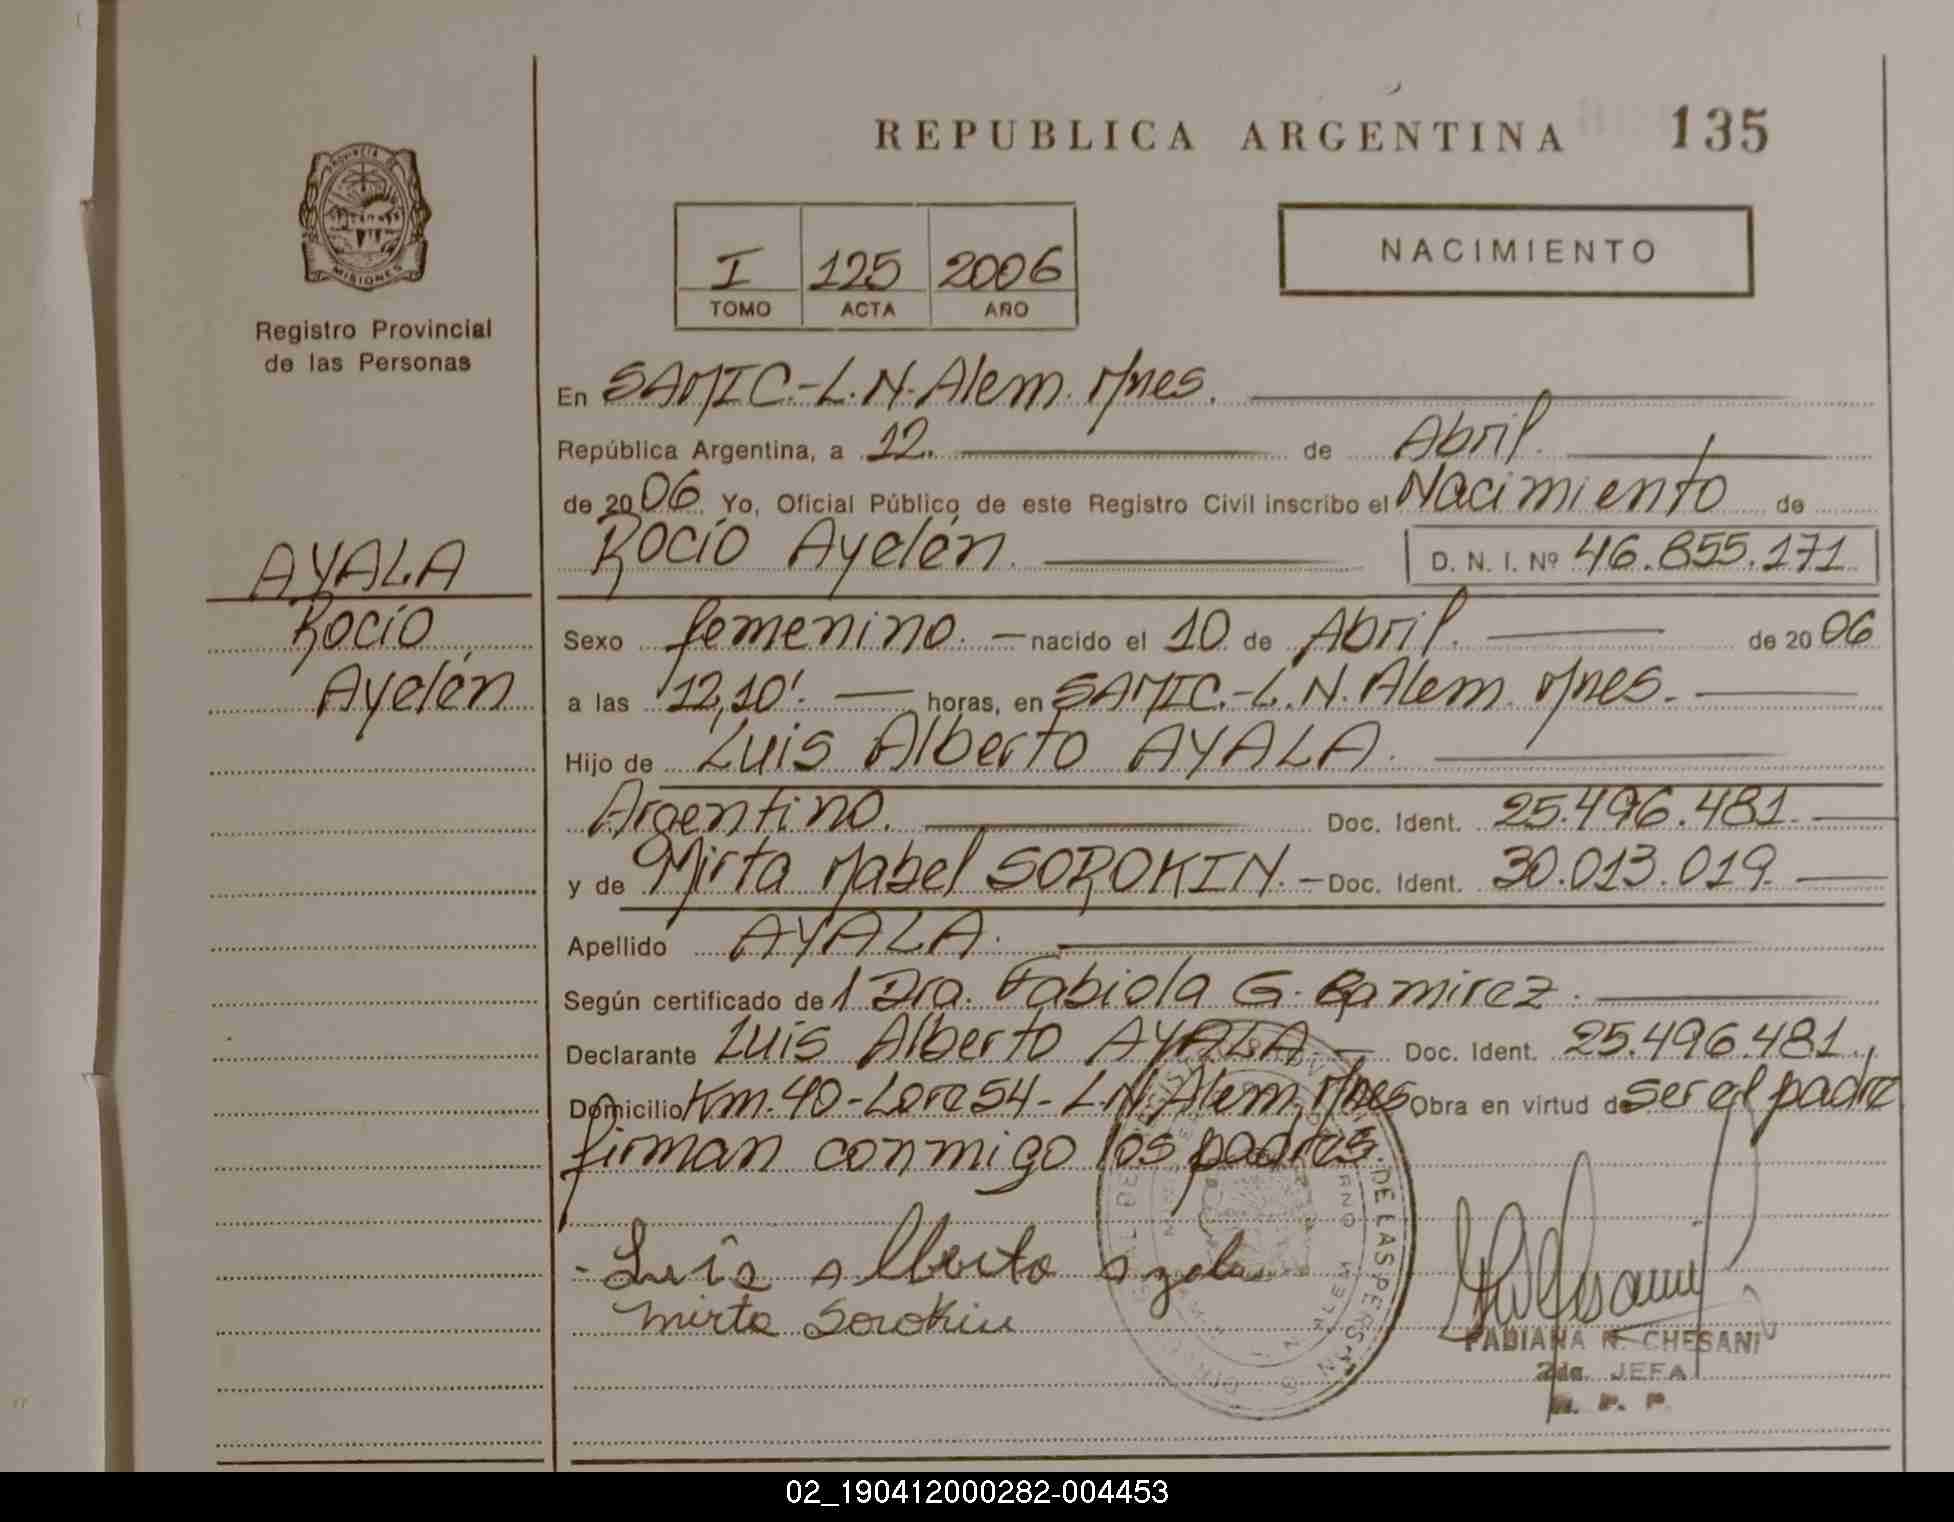 REPUBLICA ARGENTINA 135
PROVINCIA DE
MISIONES
Registro Provincial
de las Personas
I 125 2006
TOMO ACTA AÑO
NACIMIENTO
En SAMIC.-L.N.Alem. Mnes.
República Argentina, a 12. de Abril.
de 2006. Yo, Oficial Público de este Registro Civil inscribo el Nacimiento de
Rocío Ayelén. D. N. I. Nº 46.855.171
AYALA
Rocío
Ayelén
Sexo femenino. — nacido el 10 de Abril. de 2006
a las 12,10'. — horas, en SAMIC.-L.N. Alem. Mnes.
Hijo de Luis Alberto AYALA.
Argentino. Doc. Ident. 25.496.481.
y de Mirta Mabel SOROKIN. — Doc. Ident. 30.013.019.
Apellido AYALA.
Según certificado de 1 Dra. Fabiola G. Ramirez.
Declarante Luis Alberto AYALA — Doc. Ident. 25.496.481.,
Domicilio Km.40-Lote 54- L.N. Alem, Mnes Obra en virtud de ser el padre
firman conmigo los padres.
DE LAS PERSONAS
Luis Alberto Ayala
Mirta Sorokin
FABIANA N. CHESANI
2da. JEFA
R. P. P.
02_190412000282-004453